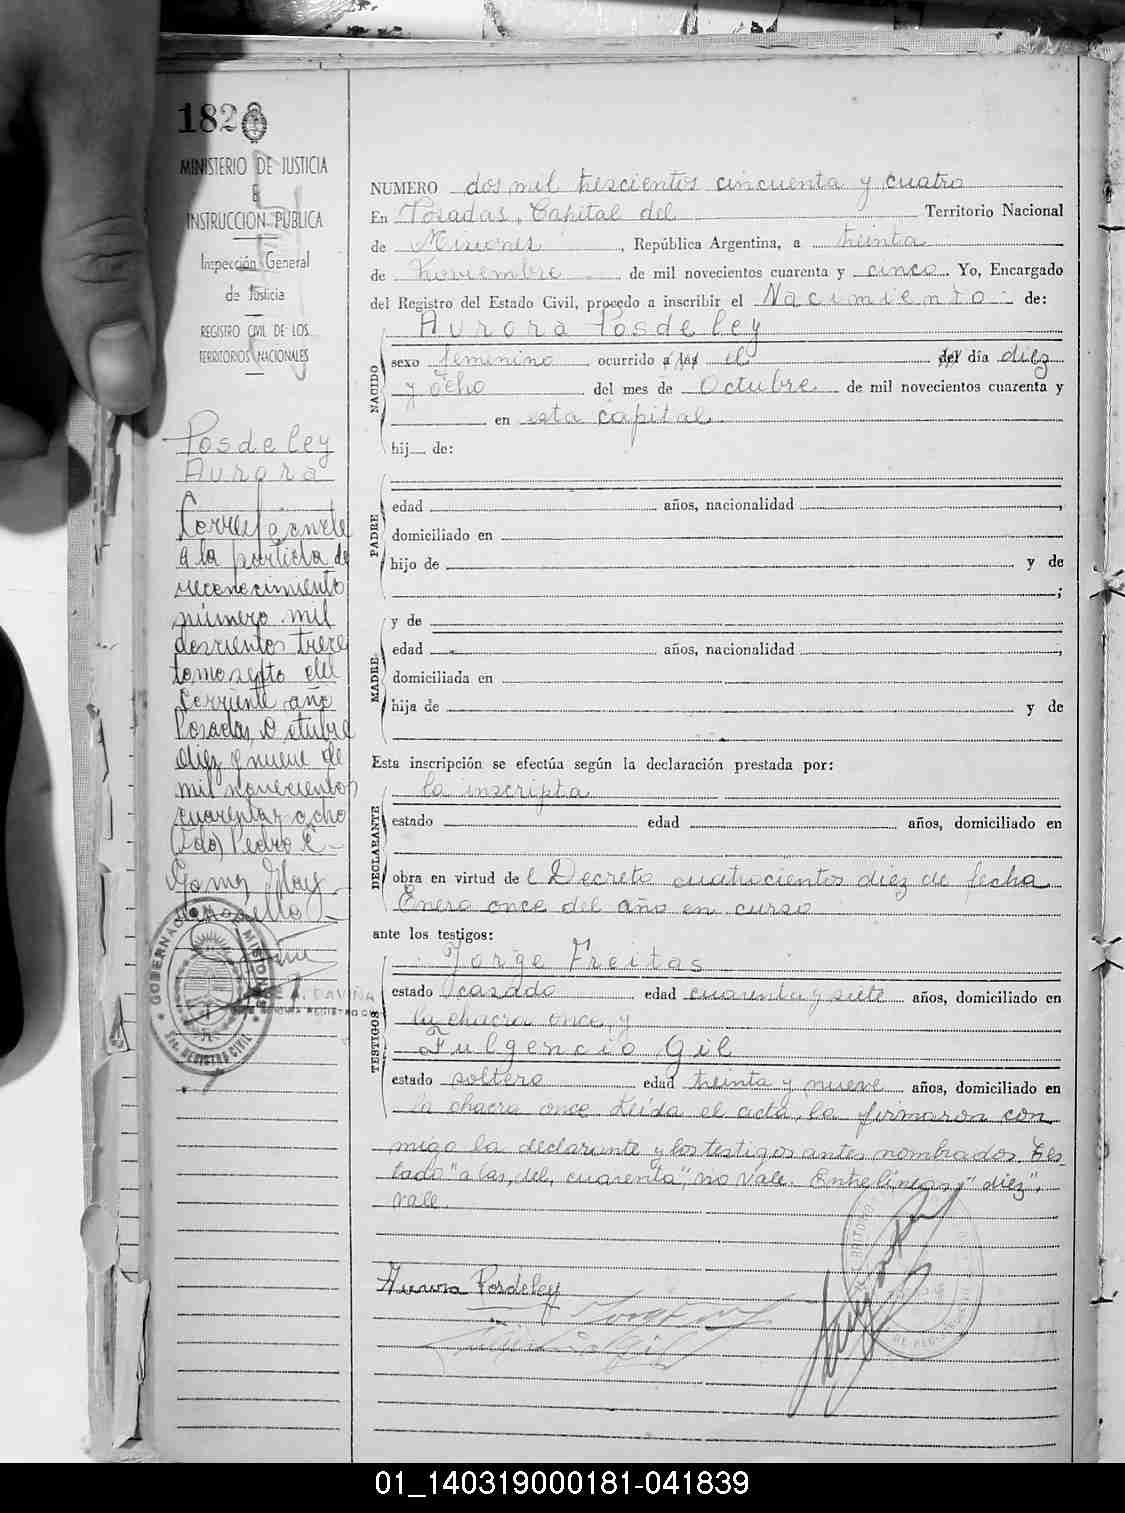 182
MINISTERIO DE JUSTICIA
E
INSTRUCCION PUBLICA
Inspección General
de Justicia
REGISTRO CIVIL DE LOS
TERRITORIOS NACIONALES
Posdeley
Aurora
Corresponde
a la partida de
reconocimiento
número mil
doscientos trece
tomo sexto del
corriente año
Posadas, Octubre
diez y nueve de
mil novecientos
cuarenta y ocho
(Fdo) Pedro E
Gomez
GOBERNACION MISIONES
REGISTRO CIVIL
A. DAVIÑA
NUMERO dos mil trescientos cincuenta y cuatro
En Posadas, Capital del Territorio Nacional
de Misiones, República Argentina, a treinta
de Noviembre de mil novecientos cuarenta y cinco. Yo, Encargado
del Registro del Estado Civil, procedo a inscribir el Nacimiento de:
NACIDO
Aurora Posdeley
sexo femenino ocurrido a las el del día diez
y ocho del mes de Octubre de mil novecientos cuarenta y
en esta capital
hij de:
PADRE
edad años, nacionalidad ,
domiciliado en
hijo de y de
;
MADRE
y de
edad años, nacionalidad ,
domiciliada en
hija de y de
Esta inscripción se efectúa según la declaración prestada por:
DECLARANTE
la inscripta
estado edad años, domiciliado en
obra en virtud de l Decreto cuatrocientos diez de fecha
Enero once del año en curso
ante los testigos:
TESTIGOS
Jorge Freitas
estado casado edad cuarenta y siete años, domiciliado en
la chacra once, y
Fulgencio Gil
estado soltero edad treinta y nueve años, domiciliado en
la chacra once. Leída el acta, la firmaron con
migo la declarante y los testigos antes nombrados. Tes-
tado "a las, del, cuarenta", no vale. Entrelíneas "diez",
vale.
Aurora Posdeley
01_140319000181-041839